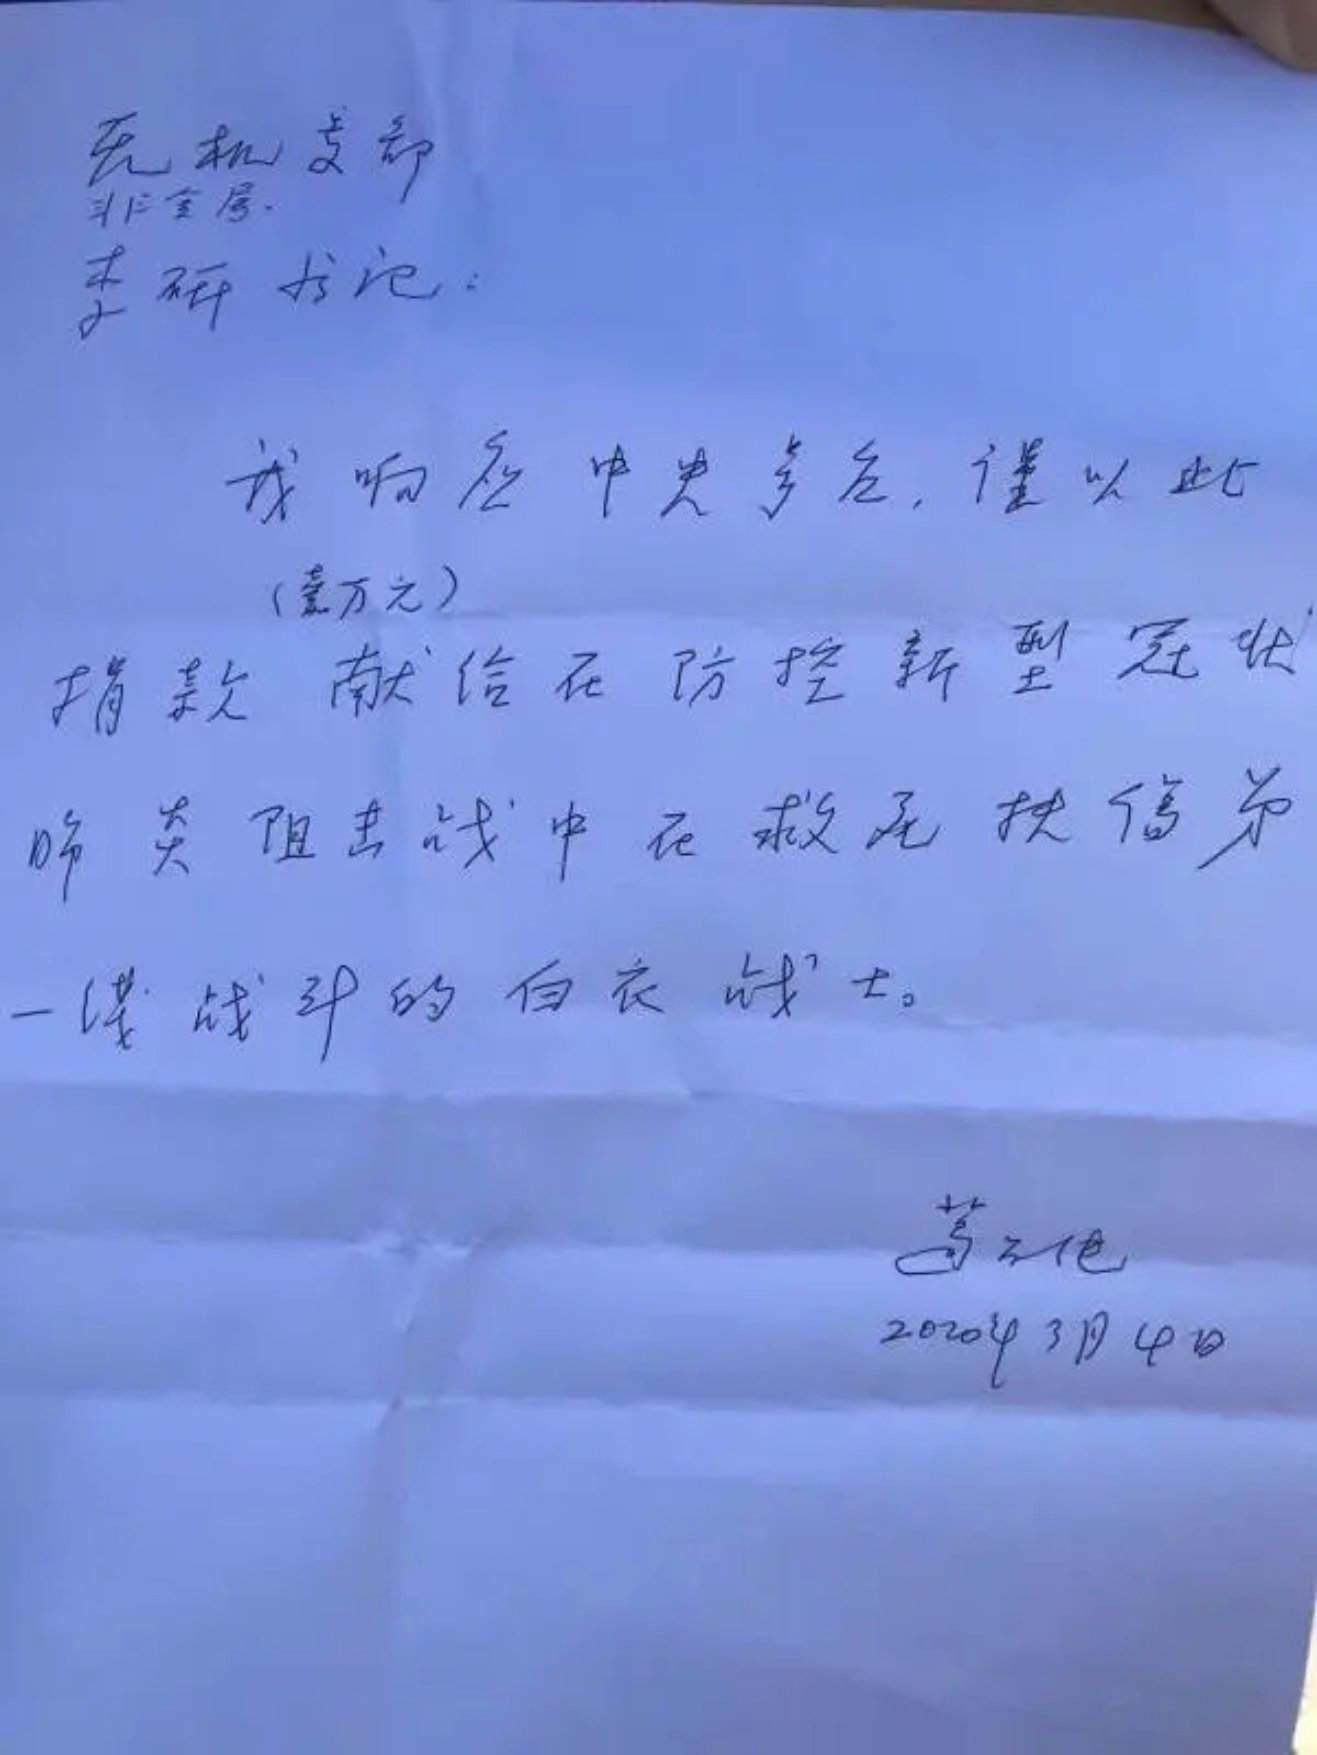 无机支部
非金属.
李研书记：
我响应中央号召，谨以此
（壹万元）
捐款献给在防控新型冠状
肺炎阻击战中在救死扶伤第
一线战斗的白衣战士。
2020年3月4日